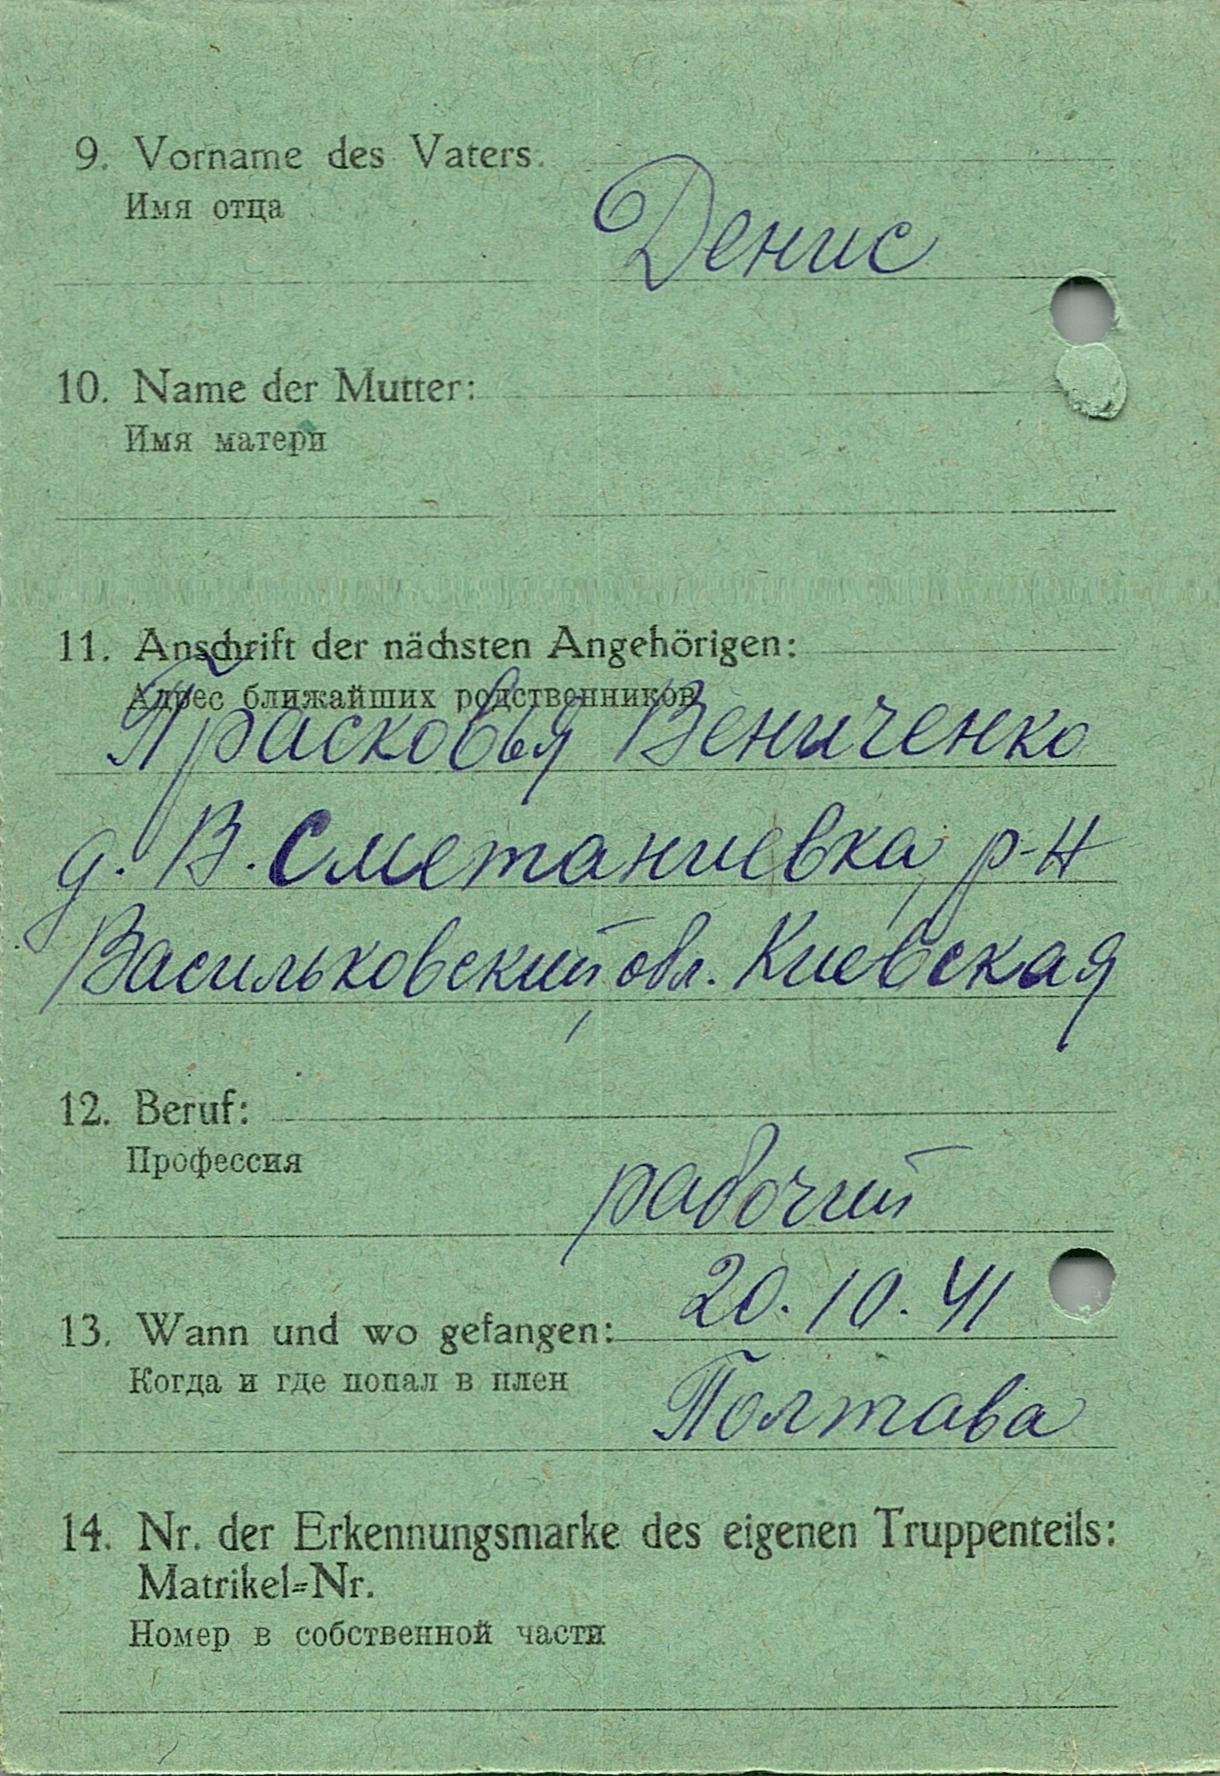 9. Vorname des Vaters.
Имя отца
Денис
10. Name der Mutter:
Имя матери
11. Anschrift der nächsten Angehörigen:
Адрес ближайших родственников
Прасковья Вениченко
д. В. Сметаниевка, р-н
Васильковский, обл. Киевская
12. Beruf:
Профессия
рабочий
20.10.41
13. Wann und wo gefangen:
Когда и где попал в плен
Полтава
14. Nr. der Erkennungsmarke des eigenen Truppenteils:
Matrikel=Nr.
Номер в собственной части